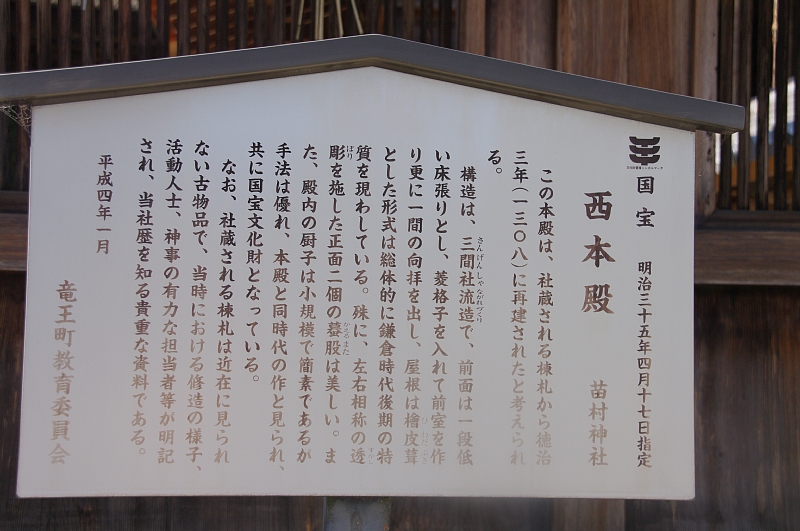 国宝 明治三十五年四月十七日指定
西本殿 苗村神社
この本殿は、社蔵される棟札から徳治
三年(一三〇八)に再建されたと考えられ
る。
構造は、三間社流造で、前面は一段低
さんげんしゃながれづくり
い床張りとし、菱格子を入れて前室を作
り更に一間の向拝を出し、屋根は檜皮葺
とした形式は総体的に鎌倉時代後期の特
質を現わしている。殊に、左右相称の透
彫を施した正面二個の蟇股は美しい。ま
ぼり
かえるまた
た、殿内の厨子は小規模で簡素であるが
手法は優れ、本殿と同時代の作と見られ、
共に国宝文化財となっている。
なお、社蔵される棟札は近在に見られ
ない古物品で、当時における修造の様子、
活動人士、神事の有力な担当者等が明記
され、当社歴を知る貴重な資料である。
平成四年一月
竜王町教育委員会